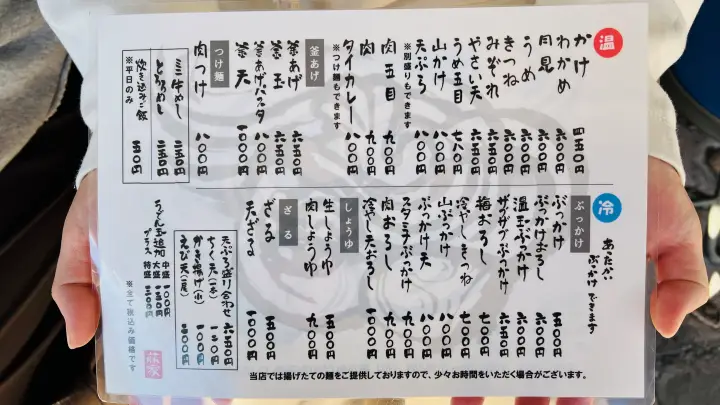 温
かけ 四五〇円
わかめ 六〇〇円
月見 六〇〇円
うめ 六〇〇円
きつね 六〇〇円
みぞれ 六五〇円
やさい天 六五〇円
うめ五目 七八〇円
山かけ 八〇〇円
天ぷら 八〇〇円
※別盛りもできます
肉五目 九〇〇円
肉 九〇〇円
タイカレー 八〇〇円
※つけ麺もできます
釜あげ
釜あげ 六五〇円
釜玉 六五〇円
釜あげバッタ 八〇〇円
釜天 一〇〇〇円
つけ麺
肉つけ 八〇〇円
ミニ牛めし 二五〇円
とろろめし 二五〇円
炊き込みご飯 二五〇円
※平日のみ
冷
あったかいぶっかけできます
ぶっかけ
ぶっかけ 五〇〇円
ぶっかけおろし 六〇〇円
温玉ぶっかけ 六〇〇円
ザクザクぶっかけ 六五〇円
梅おろし 七〇〇円
冷やしきつね 七〇〇円
山ぶっかけ 八〇〇円
ぶっかけ天 八〇〇円
スタミナぶっかけ 九〇〇円
肉おろし 九〇〇円
冷やし天おろし 一〇〇〇円
しょうゆ
生しょうゆ 五〇〇円
肉しょうゆ 九〇〇円
ざる
ざる 五〇〇円
天ざる 一〇〇〇円
天ぷら盛り合わせ 六五〇円
ちく天(一本) 一五〇円
かき揚げ(小) 一〇〇円
えび天(一尾) 二〇〇円
うどん玉追加
プラス
中盛 一〇〇円
大盛 一五〇円
特盛 二〇〇円
※全て税込み価格です
当店では揚げたての麺をご提供しておりますので、少々お時間をいただく場合がございます。